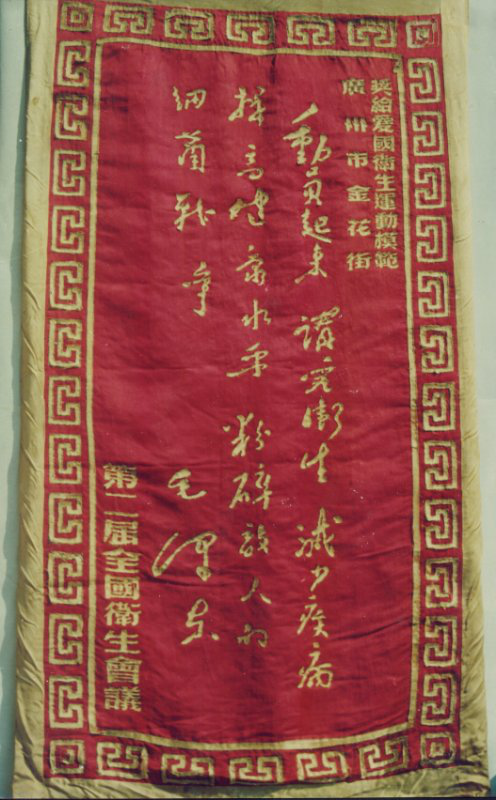 獎給爱國衛生運動模範
廣州市金花街
動員起來 講究衛生 減少疾病
提高健康水平 粉碎敌人的
细菌战争
毛澤东
第二届全國衛生會議